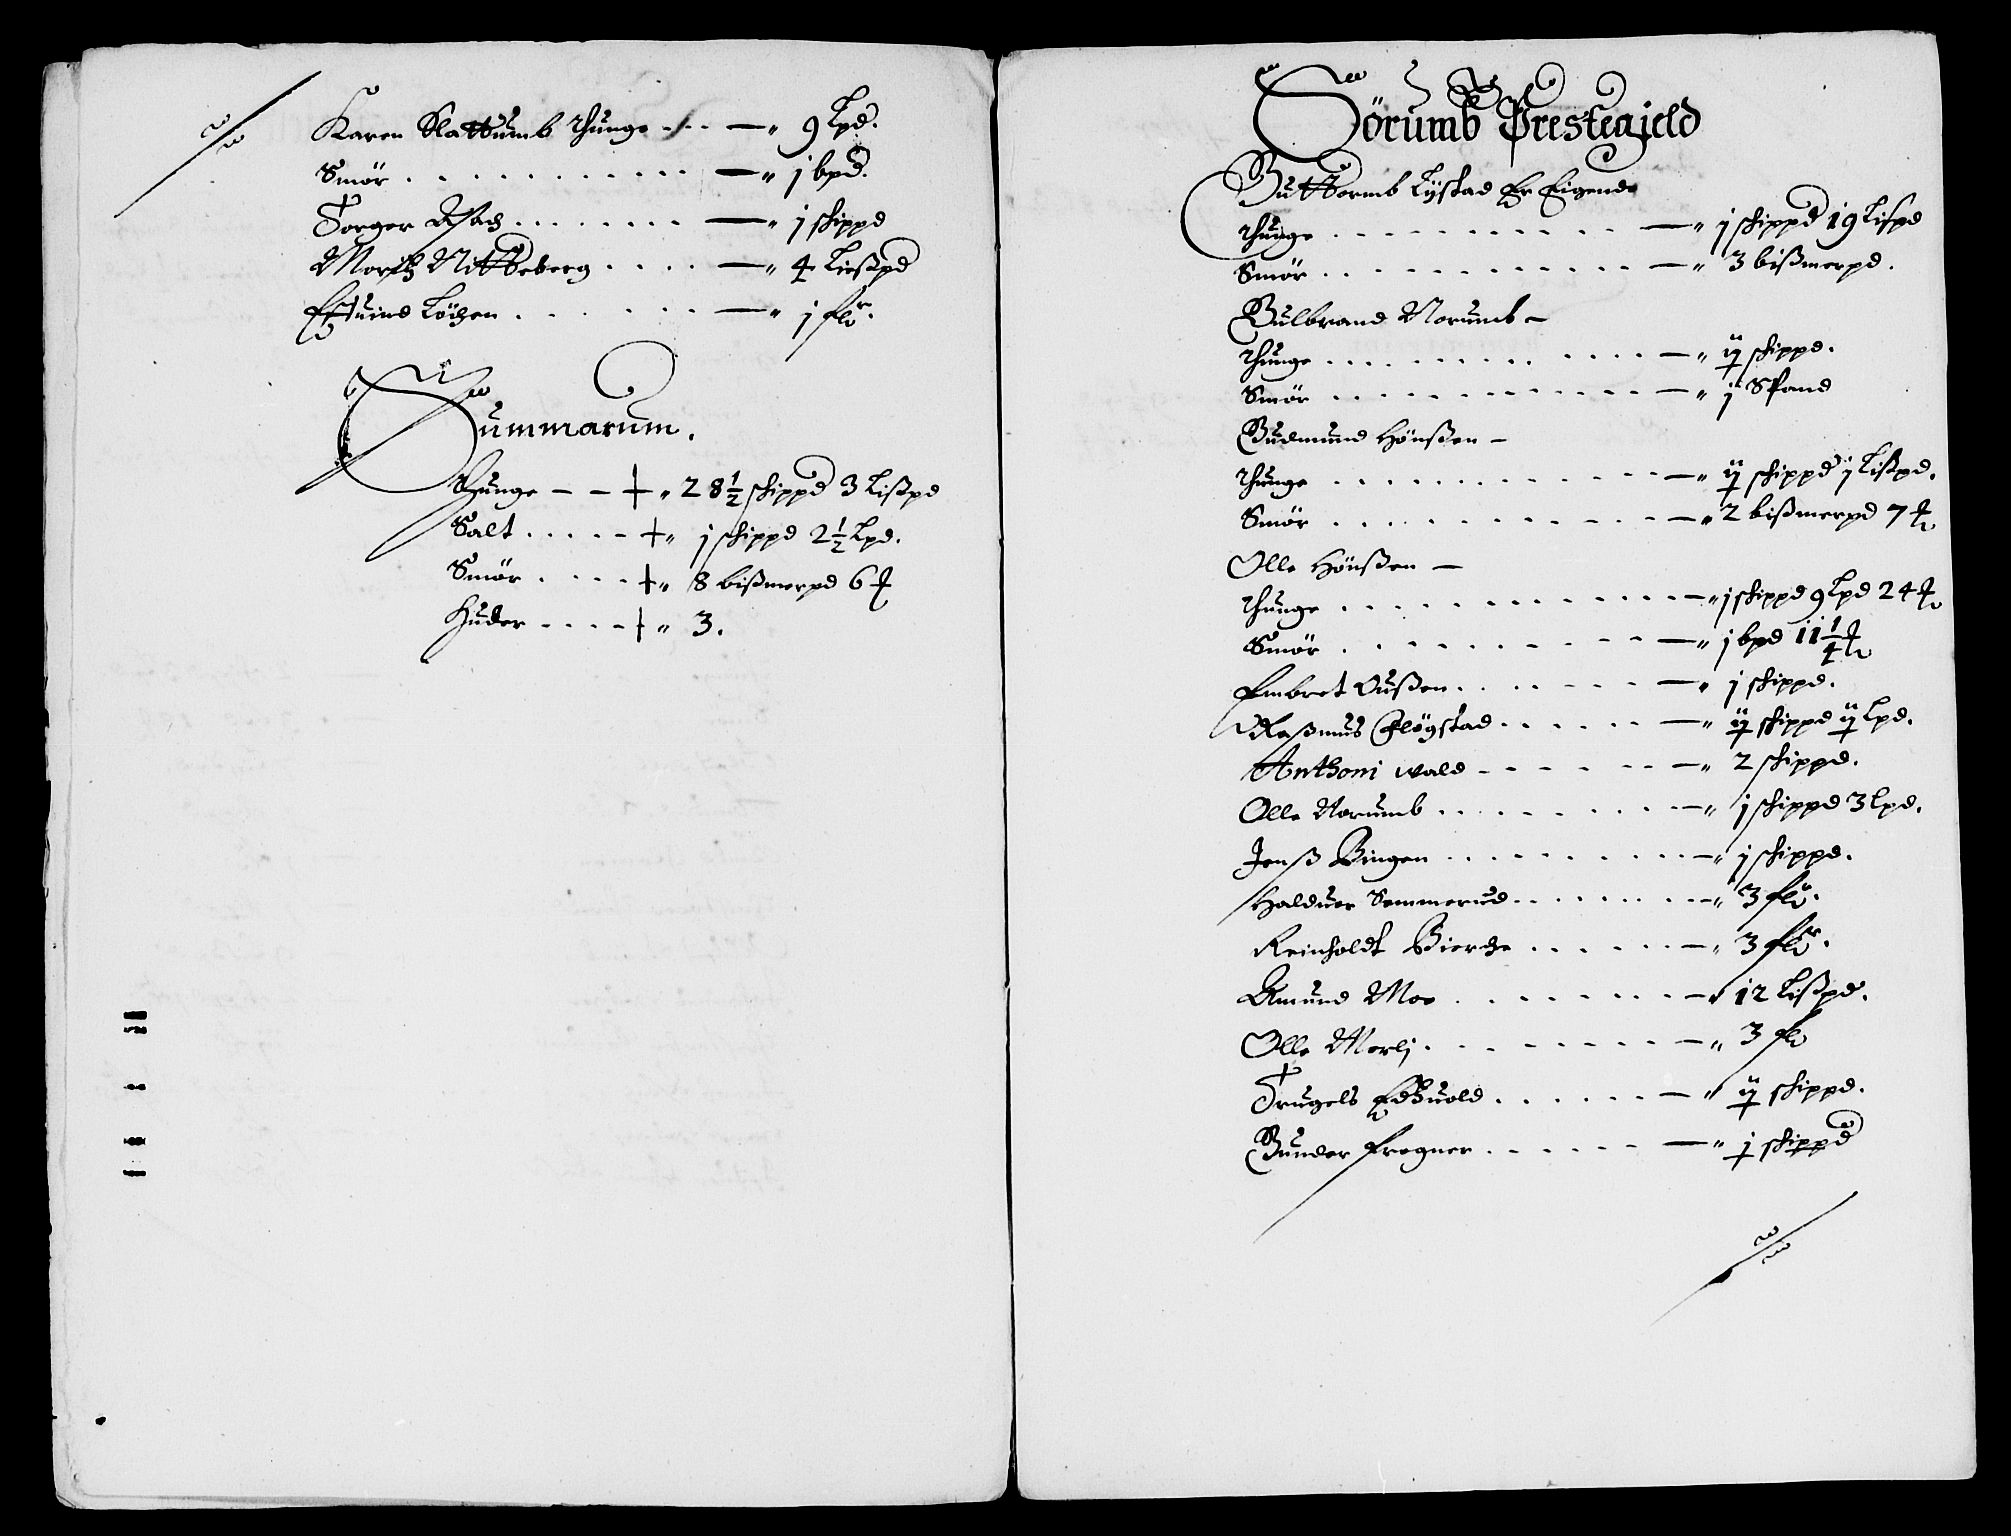 Karen Slattumb thunge - - - — " 9 Lpd.
Smör . . . . . . . . . . . — " j bpd.
Torger . . . . . . . — " j schippd
Moritz Nitteberg . . . . — " 4 Lißpd
Efuind Löchen . . . . . . — " j flr.
Summarum.
Thunge - - + " 28½ schippd 3 Lißpd
Salt . . . . . - + " j schippd 2½ Lpd.
Smör . . . . + " 8 bißmerpd 6 ℔
Huder - - - - + " 3.
Sörumb Prestegjeld
Guttormb Lystad Er Eigende
thunge . . . . . . . . . . . — " j schippd 19 Lispd
Smör . . . . . . . . . . . . — " 3 bißmerpd.
Gulbrand Norumb —
thunge . . . . . . . . . . . — " ij schippd.
Smör . . . . . . . . . . . . — " j Spand
Gudmund Hönßen —
thunge . . . . . . . . . . . — " ij schippd j Lißpd.
Smör . . . . . . . . . . . . — " 2 bißmerpd 7 ℔
Olle Hönßen —
thunge . . . . . . . . . . . — " j schippd 9 Lpd 24 ℔
Smör . . . . . . . . . . — " j bpd 11¼ ℔
Embret Oußen . . . . . . — " j schippd.
Raßmus Fløgstad . . . . . . — " ij schippd ij Lpd.
Anthoni wald - - - - - - — " 2 schippd.
Olle Norumb . . . . . . . . — " j schippd 3 lpd.
Jenß Bingen . . . . . . . . . . — " j schippd.
Halduor Sommerud . . . . . . . . — " 3 flr.
Reinholdt Bierche . . . . . . — " 3 flr.
Amund Moe . . . . . . . . — " 12 Lißpd.
Olle Merli . . . . . . . . — " 3 fl
Trugels Edzuold . . . . . . — " ij schippd.
Gunder Frogner . . . . . . — " j schippd